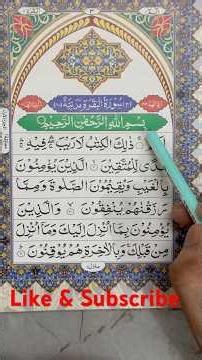 (٢) سُورَةُ الْبَقَرَةِ مَدَنِيَّةٌ
بِسْمِ اللهِ الرَّحْمٰنِ الرَّحِيْمِ
ذٰلِكَ الْكِتٰبُ لَا رَيْبَ ۛ فِيْهِ ۛ
هُدًى لِّلْمُتَّقِيْنَ ۙ الَّذِيْنَ يُؤْمِنُوْنَ
بِالْغَيْبِ وَيُقِيْمُوْنَ الصَّلٰوةَ وَمِمَّا
رَزَقْنٰهُمْ يُنْفِقُوْنَ ۙ وَالَّذِيْنَ
يُؤْمِنُوْنَ بِمَآ اُنْزِلَ اِلَيْكَ وَمَآ اُنْزِلَ
مِنْ قَبْلِكَ ۚ وَبِالْاٰخِرَةِ هُمْ يُوْقِنُوْنَ
Like & Subscribe